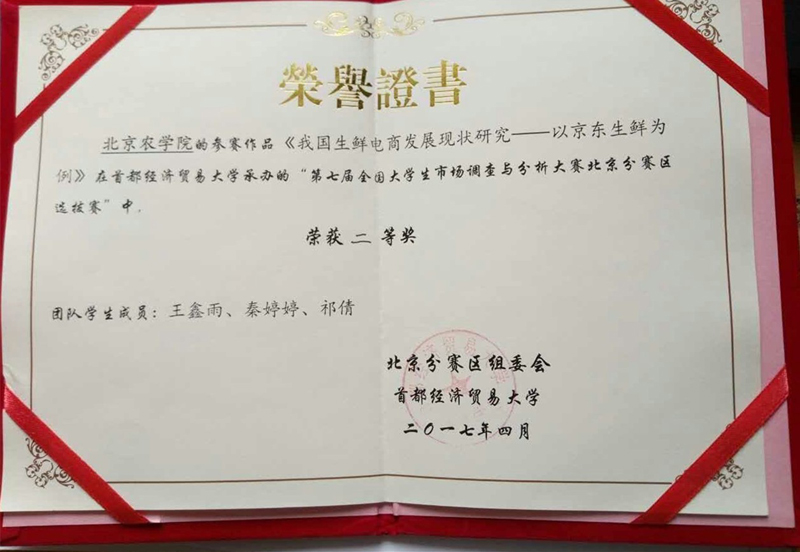 榮譽證書
北京农学院的参赛作品《我国生鲜电商发展现状研究——以京东生鲜为
例》在首都经济贸易大学承办的“第七届全国大学生市场调查与分析大赛北京分赛区
选拔赛”中,
荣获 二 等奖
团队学生成员：王鑫雨、秦婷婷、祁倩
北京分赛区组委会
首都经济贸易大学
二〇一七年四月